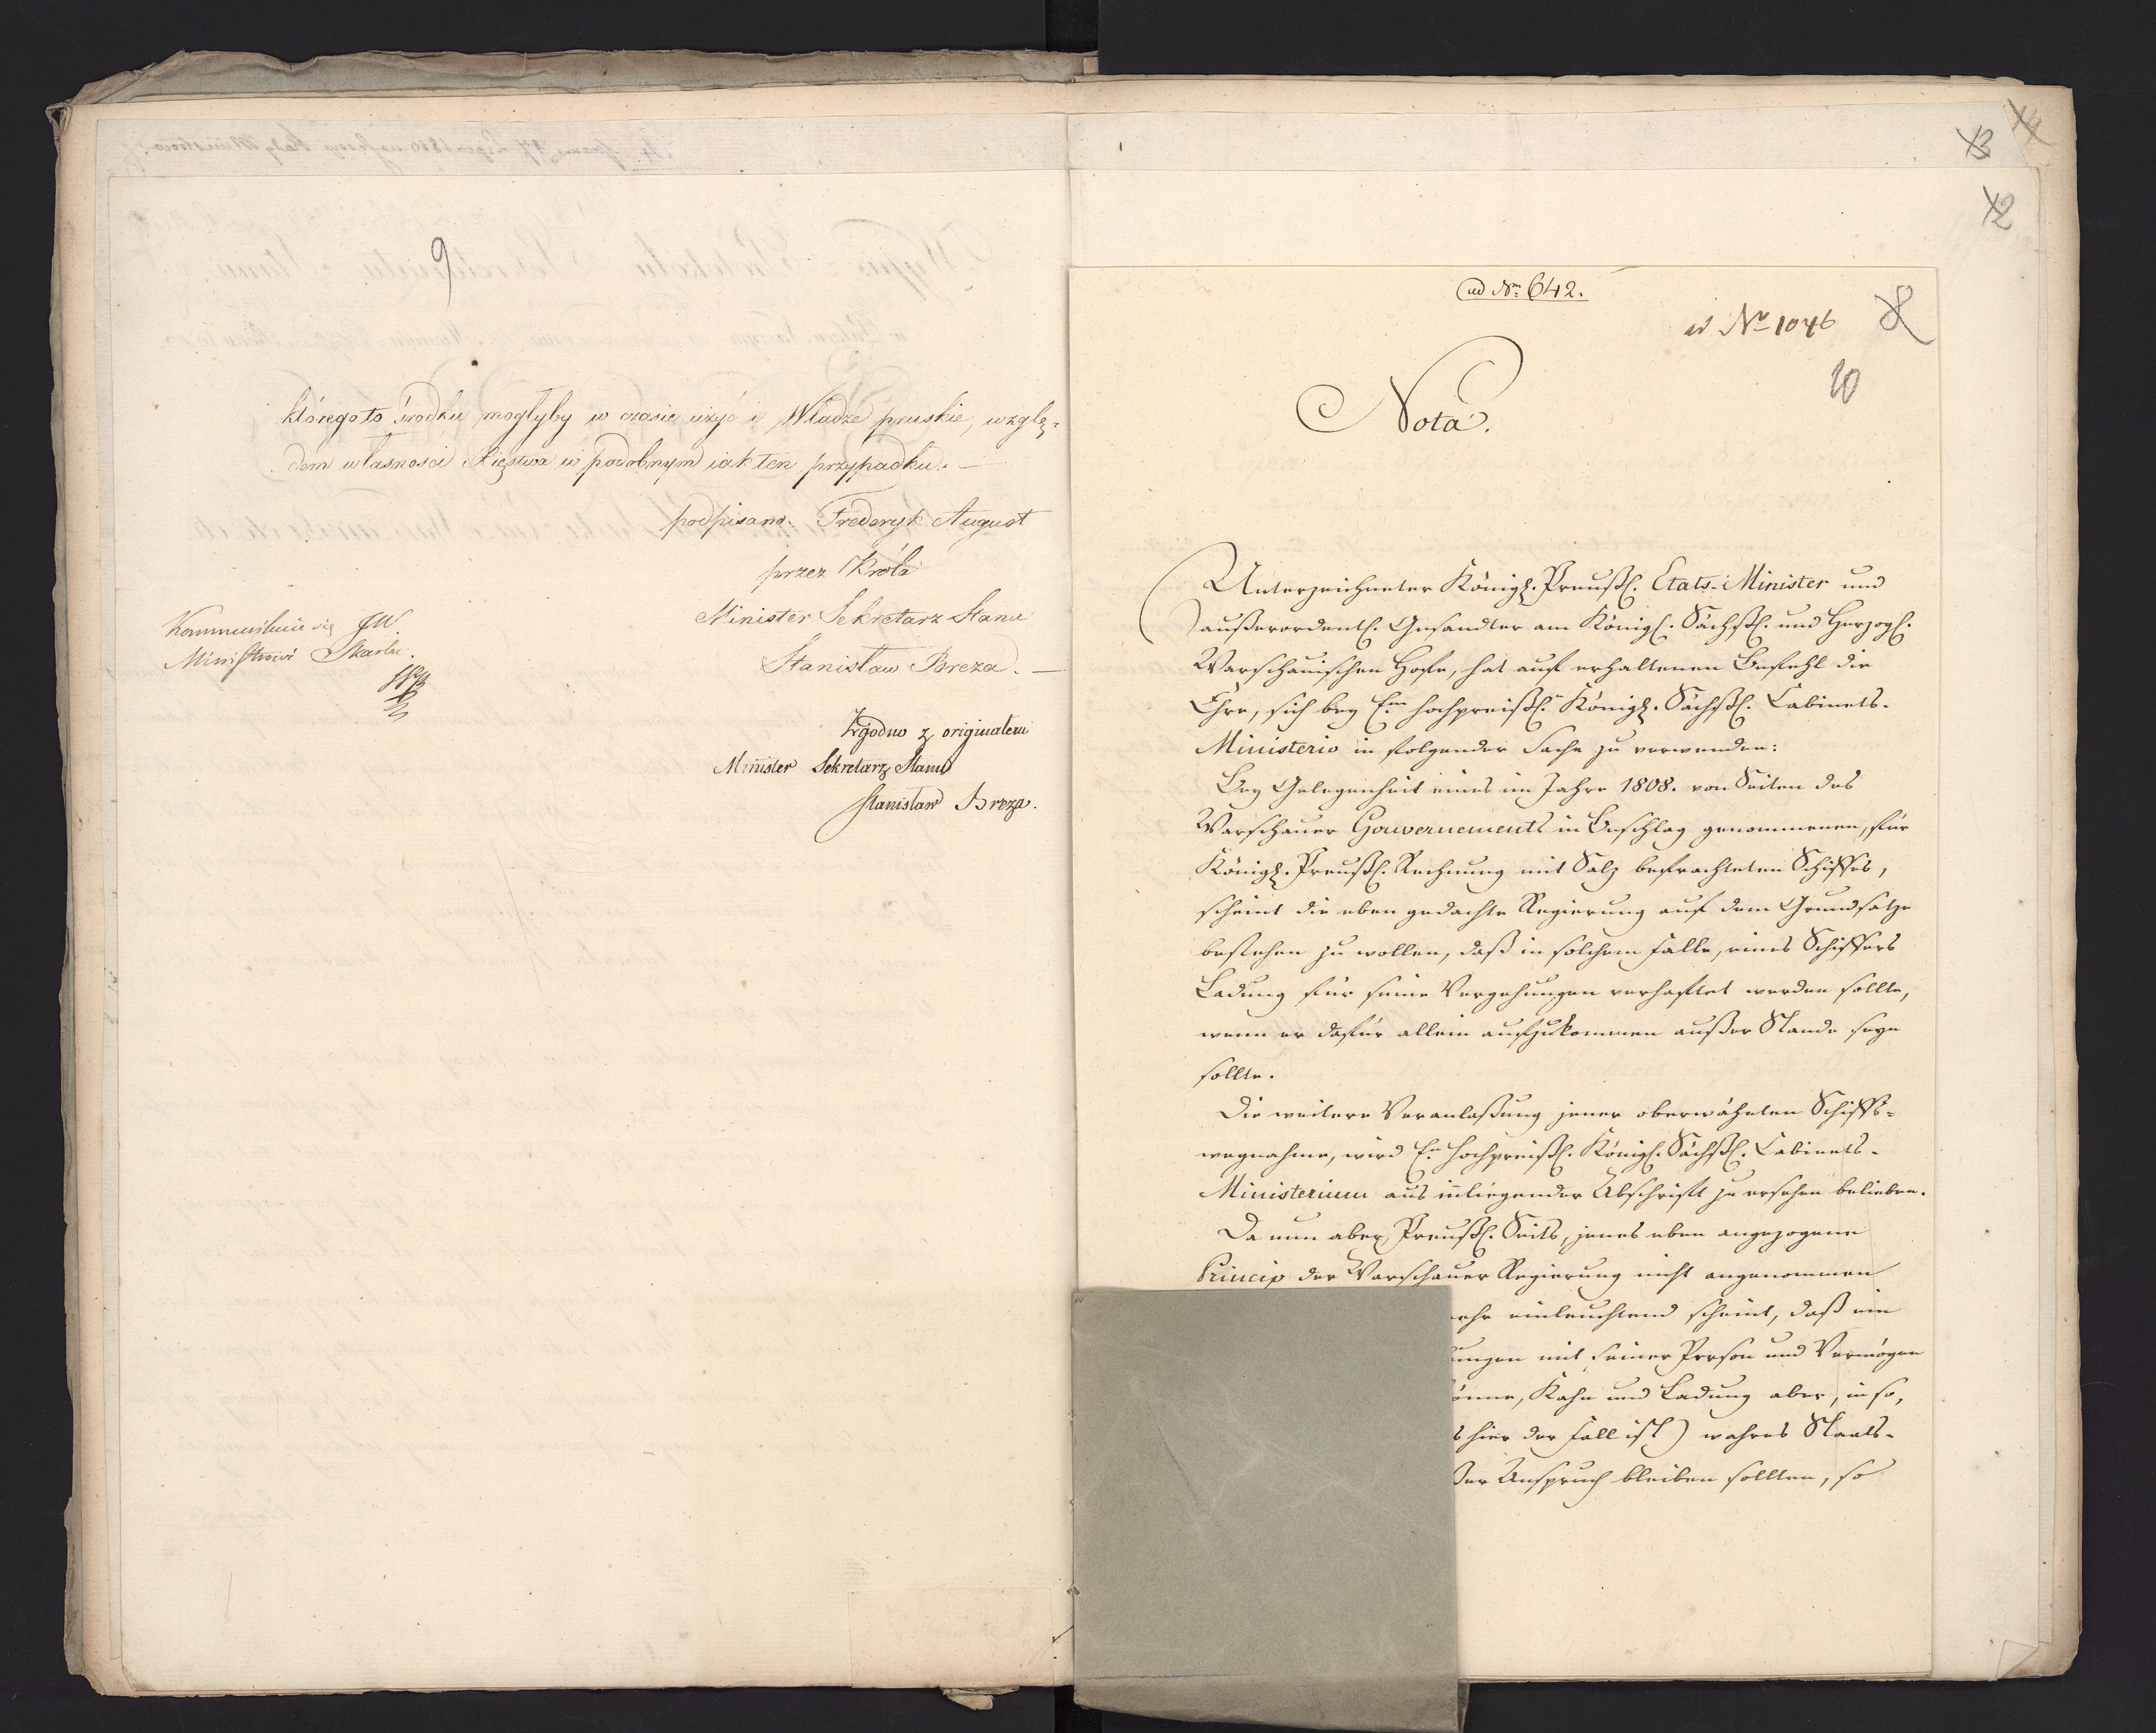 9
którego to środku mogłyby w czasie użyć i Władze pruskie, wzglę-
dem własności Xięstwa w podobnym iak ten przypadku. —
podpisano. Fryderyk August
przez Króla
Minister Sekretarz Stanu
Stanisław Breza. —
Kommunikuie się JW.
Ministrowi Skarbu.
Zgodno z originałem
Minister Sekretarz Stanu
Stanisław Breza.
14
13
12
ad Nm 642.
ad No 1046
8
10
Nota.
Unterzeichneter Königl. Preußl. Etats-Minister und
außerordentl. Gesandter am Königl. Sächßl. und Herzogl.
Warschauischen Hofe, hat auf erhaltenen Befehl die
Ehre, sich bey Em hochpreißl. Königl. Sächßl. Cabinets-
Ministerio in folgender Sache zu verwenden:
Bey Gelegenheit eines im Jahre 1808. von Seiten des
Warschauer Gouvernements in Beschlag genommenen, für
Königl. Preußl. Rechnung mit Salz befrachteten Schiffes,
scheint die eben gedachte Regierung auf dem Grundsatze
bestehen zu wollen, daß in solchem Falle, eines Schiffers
Ladung für seine Vergehungen verhaftet werden sollte,
wenn er dafür allein aufzukommen außer Stande seyn
sollte.
Die weitere Veranlaßung jener oberwähnten Schiffs-
wegnahme, wird En hochpreißl. Königl. Sächßl. Cabinets-
Ministerium aus inliegender Abschrift zu ersehen belieben.
Da nun aber, Preußl. Seits, jenes eben angezogene
Princip der Warschauer Regierung nicht angenommen
ehr einleuchtend scheint, daß ein
ungen mit seiner Person und Vermögen
önne, Kahn und Ladung aber, in so,
s hier der Fall ist) wahres Staats-
ßer Anspruch bleiben sollten, so